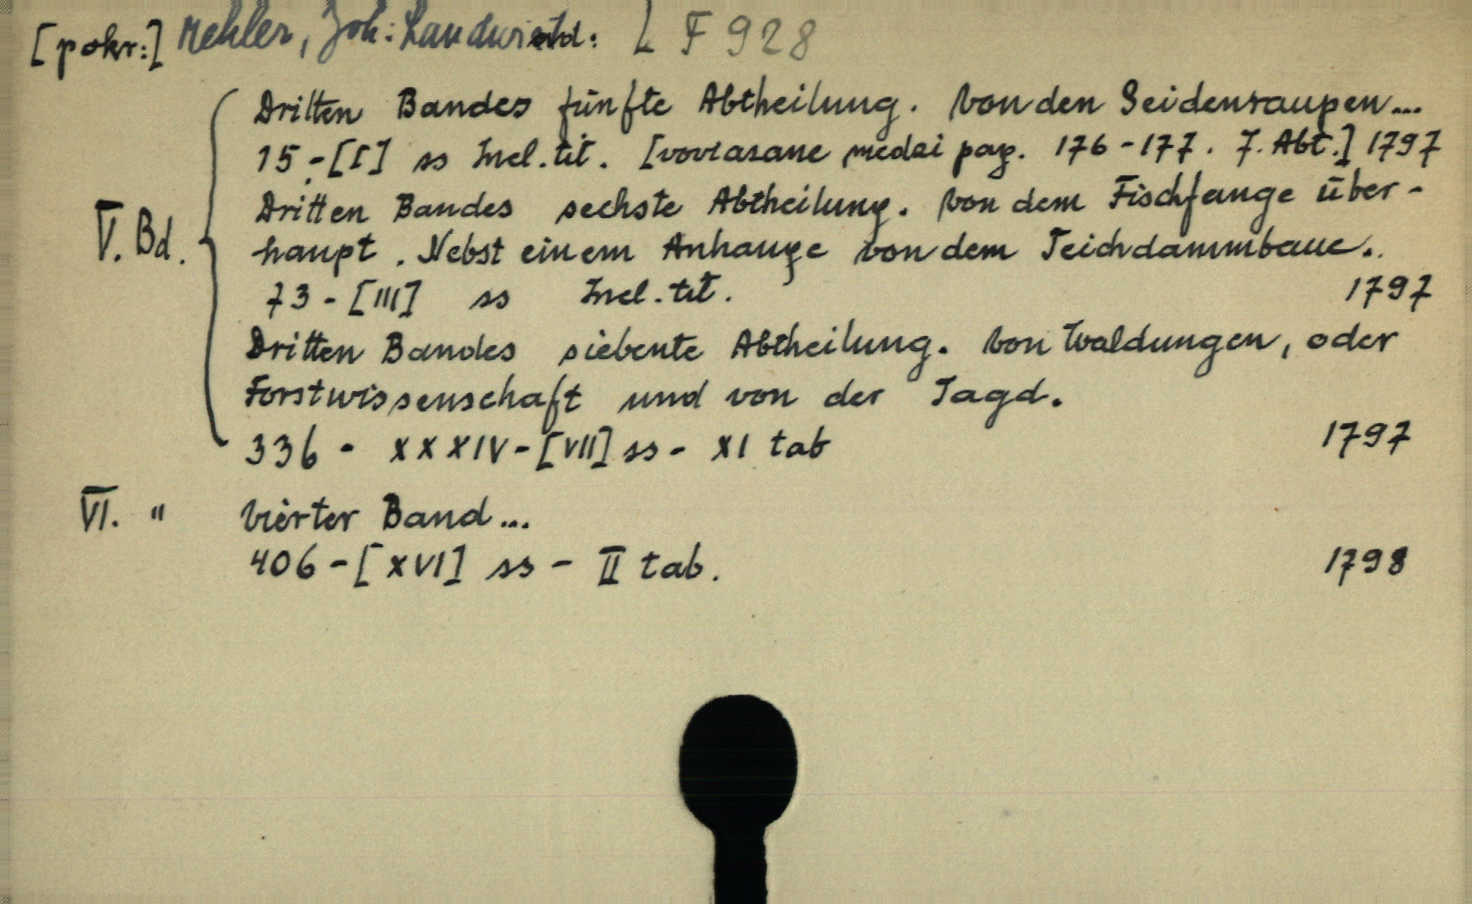 [pokr:] Mehler, Joh: Landwirtd: L F 928
Dritten Bandes fünfte Abtheilung. Von den Seidenraupen...
15 - [I] ss Incl. tit. [vovrazane medzi pag. 176-177. 7. Abt.] 1797
Dritten Bandes sechste Abtheilung. Von dem Fischfange über-
V. Bd. haupt. Nebst einem Anhange von dem Teichdammbaue.
73 - [III] ss Incl. tit. 1797
Dritten Bandes siebente Abtheilung. Von Waldungen, oder
Forstwissenschaft und von der Jagd.
336 - XXXIV - [VII] ss - XI tab 1797
VI. " Vierter Band...
406 - [XVI] ss - II tab. 1798